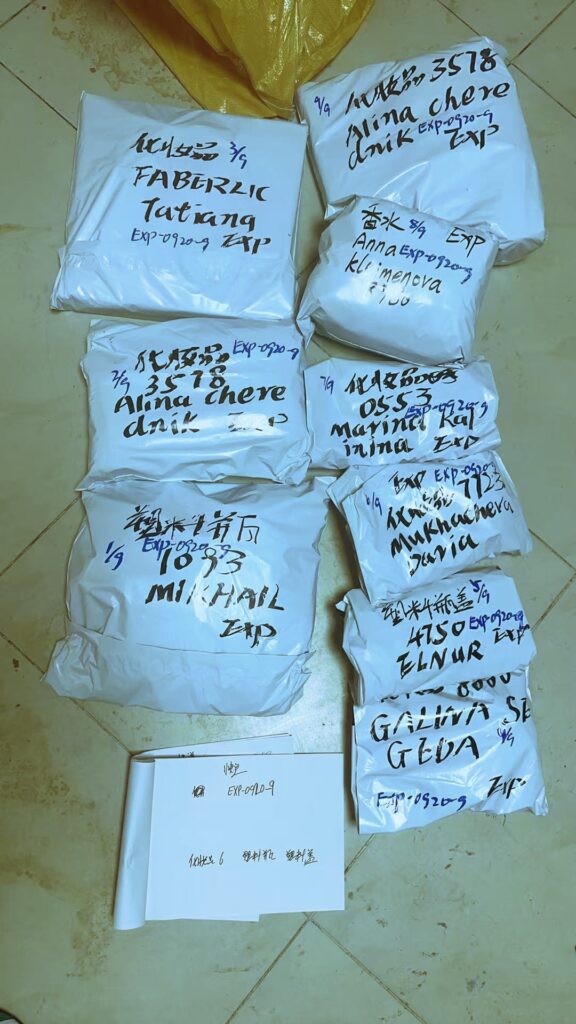 化妆品 3/9
FABERLIC
Tatiana
EXP-0920-9 EXP
9/9 化妆品 3578
Alina chere
dnik EXP-0920-9 EXP
香水 8/9 EXP
Anna EXP-0920-9
kleimenova
7700
化妆品 EXP-0920-9
2/9 3578
Alina chere
dnik EXP
7/9 化妆品
0553
EXP-0920-9
Marina Kal
inina EXP
塑料瓶
1/9 EXP-0920-9
1093
MIKHAIL
EXP
EXP EXP-0920
6/9 化妆品 7723
Mukhacheva
Daria
塑料瓶盖 5/9
4750 EXP-0920-9
ELNUR EXP
GALINA SE
GEDA 4/9
EXP-0920-9 EXP
EXP-0920-9
化妆品 6 塑料瓶 塑料盖